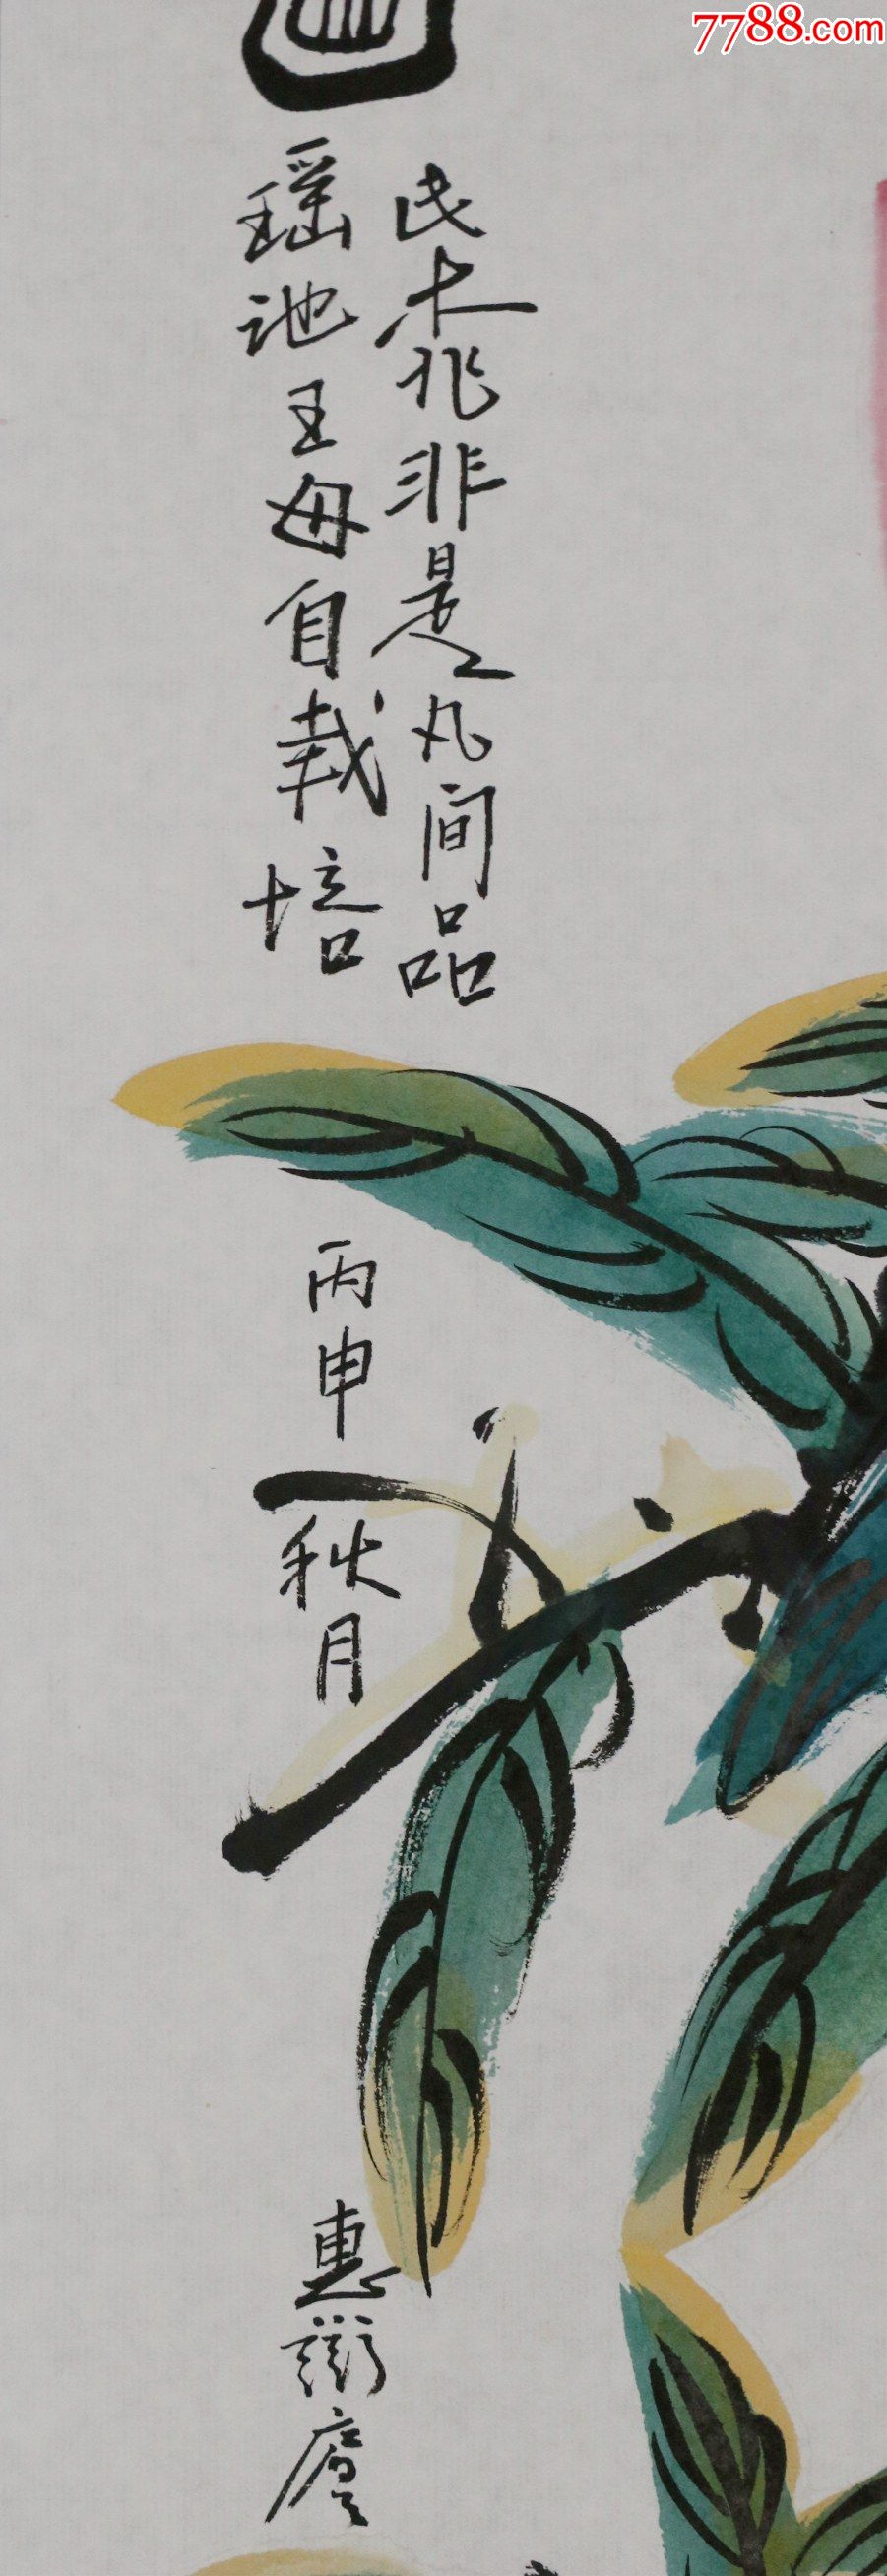 7788.com
此桃非是凡间品
瑶池王母自栽培
丙申秋月
惠